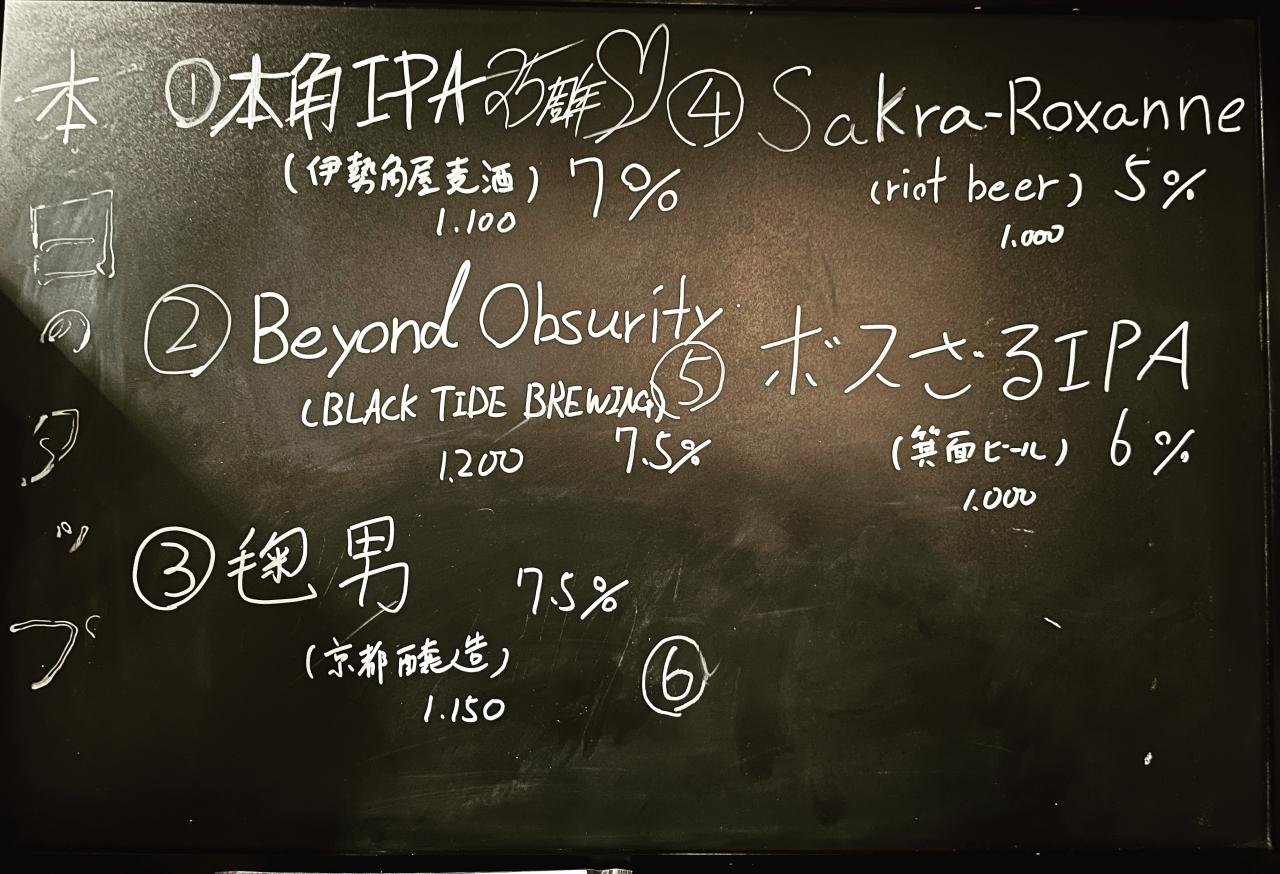 本日のタップ
①本角IPA 25周年
(伊勢角屋麦酒) 7%
1.100
②Beyond Obsurity
(BLACK TIDE BREWING)
1.200 7.5%
③毱男 7.5%
(京都醸造)
1.150
④Sakra-Roxanne
(riot beer) 5%
1.000
⑤ボスざるIPA
(箕面ビール) 6%
1.000
⑥